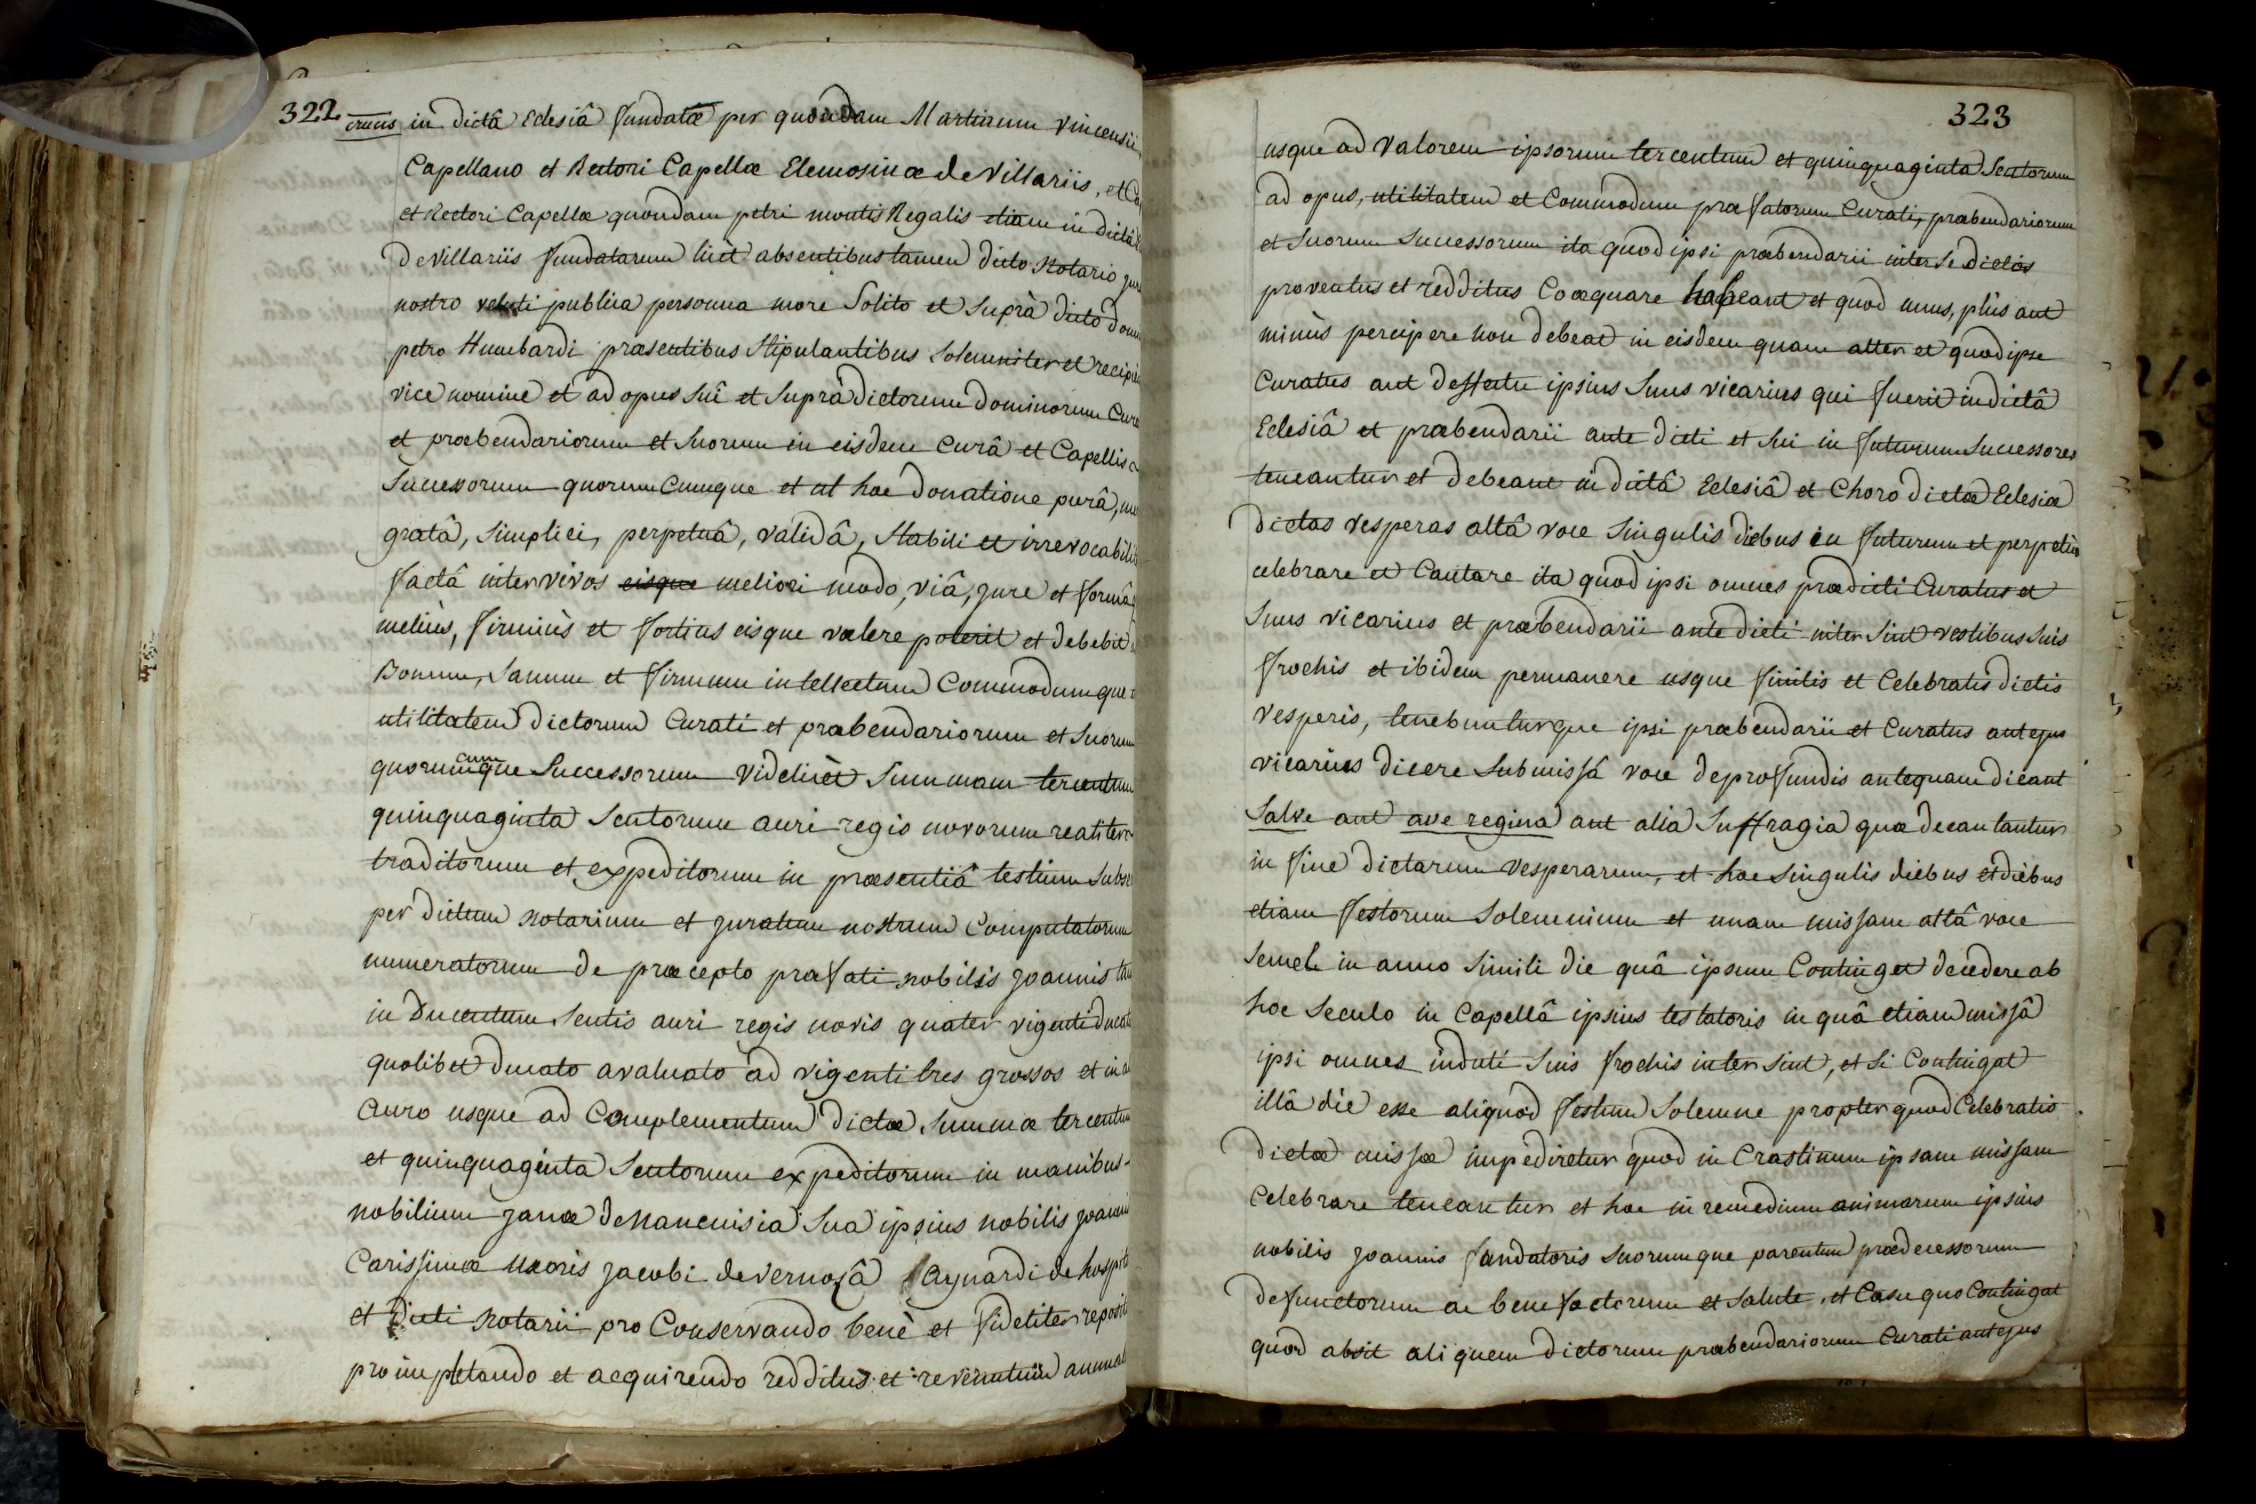 322
crucis in dictâ Eclesiâ fundatæ per quondam Martinum vincensii
Capellano et Rectori Capellæ Elemosinæ de Villariis, et Ca
et Rectori Capellæ quondam petri montis Regalis etiam in dictâ
de villariis fundatarum licèt absentibus tamen dicto Notario jura
nostro veluti publica personna more Solito et Suprà dicto dom
petro Humbardi præsentibus Stipulantibus Solemniter et recipi
vice nomine et ad opus Suî et Suprà dictorum dominorum Cura
et præbendariorum et Suorum in eisdem Curâ et Capellis
Successorum quorumcumque et ut hac donatione purâ, me
gratâ, Simplici, perpetuâ, validâ, Stabili et irrevocabili
factâ inter vivos eisque meliori modo, viâ, jure et formâ
meliùs, firmiùs et fortius eisque valere poterit et debebit
Bonum, Sanum et firmum intellectum Commodumque
utilitatem dictorum Curati et præbendariorum et Suorum
quorumcumque Successorum videlicèt Summam tercentum
quinquaginta Scutorum auri regis novorum realiter
traditorum et expeditorum in præsentiâ testium Subsc
per dictum Notarium et juratum nostrum Computatorum
numeratorum de præcepto præfati nobilis joannis tam
in Ducentum Scutis auri regis novis quater vigenti ducat
quolibet ducato avaluato ad vigenti tres grossos et in a
auro usque ad Complementum dictæ Summæ tercentum
et quinquaginta Scutorum expeditorum in manibus
nobilium janæ de Nancuisia Sua ipsius nobilis joannis
Carissimæ Uxoris jacobi de vernosâ aynardi de hospit
et dicti Notarii pro Conservando benè et fideliter reposit
pro impletando et acquirendo redditus et reventuu annual
323
usque ad Valorem ipsorum tercentum et quinquaginta Scutorum
ad opus, utilitatem et Commodum præfatorum Curati, præbendariorum
et Suorum Successorum ita quod ipsi præbendarii inter Se dictos
proventus et redditus Coæquare habeant et quod unus, plùs aut
minùs percipere non debeat in eisdem quam alter et quod ipse
Curatus aut deffectu ipsius Suus vicarius qui fuerit in dictâ
Eclesiâ et præbendarii ante dicti et Sui in futurum Successores
teneantur et debeant in dictâ Eclesiâ et Choro dictæ Eclesiæ
dictas vesperas altâ voce Singulis diebus in futurum et perpetùo
celebrare et Cantare ita quod ipsi omnes prædicti Curatus et
Suus vicarius et præbendarii ante dicti inter Sint vestibus Suis
frochis et ibidem permanere usque finitis et Celebratis dictis
vesperis, tenebunturque ipsi præbendarii et Curatus aut ejus
vicarius dicere Submissâ voce de profundis antequam dicant
Salve aut ave regina aut alia Suffragia quæ decantantur
in fine dictarum vesperarum, et hoc Singulis diebus et diebus
etiam festorum Solemnium et unam missam altâ voce
Semel in anno Simili die quâ ipsum Continget decedere ab
hoc Seculo in Capellâ ipsius testatoris in quâ etiam missâ
ipsi omnes induti Suis frochis inter Sint, et Si Contingat
illâ die esse aliquod festum Solemne propter quod Celebratio
dictæ missæ impediretur quod in Crastinum ipsam missam
Celebrare teneantur et hoc in remedium animarum ipsius
nobilis joannis fundatoris Suorumque parentum prædecessorum
defunctorum ac benefactorum et Salute, et Casu quo Contingat
quod absit aliquem dictorum præbendariorum Curati aut ejus